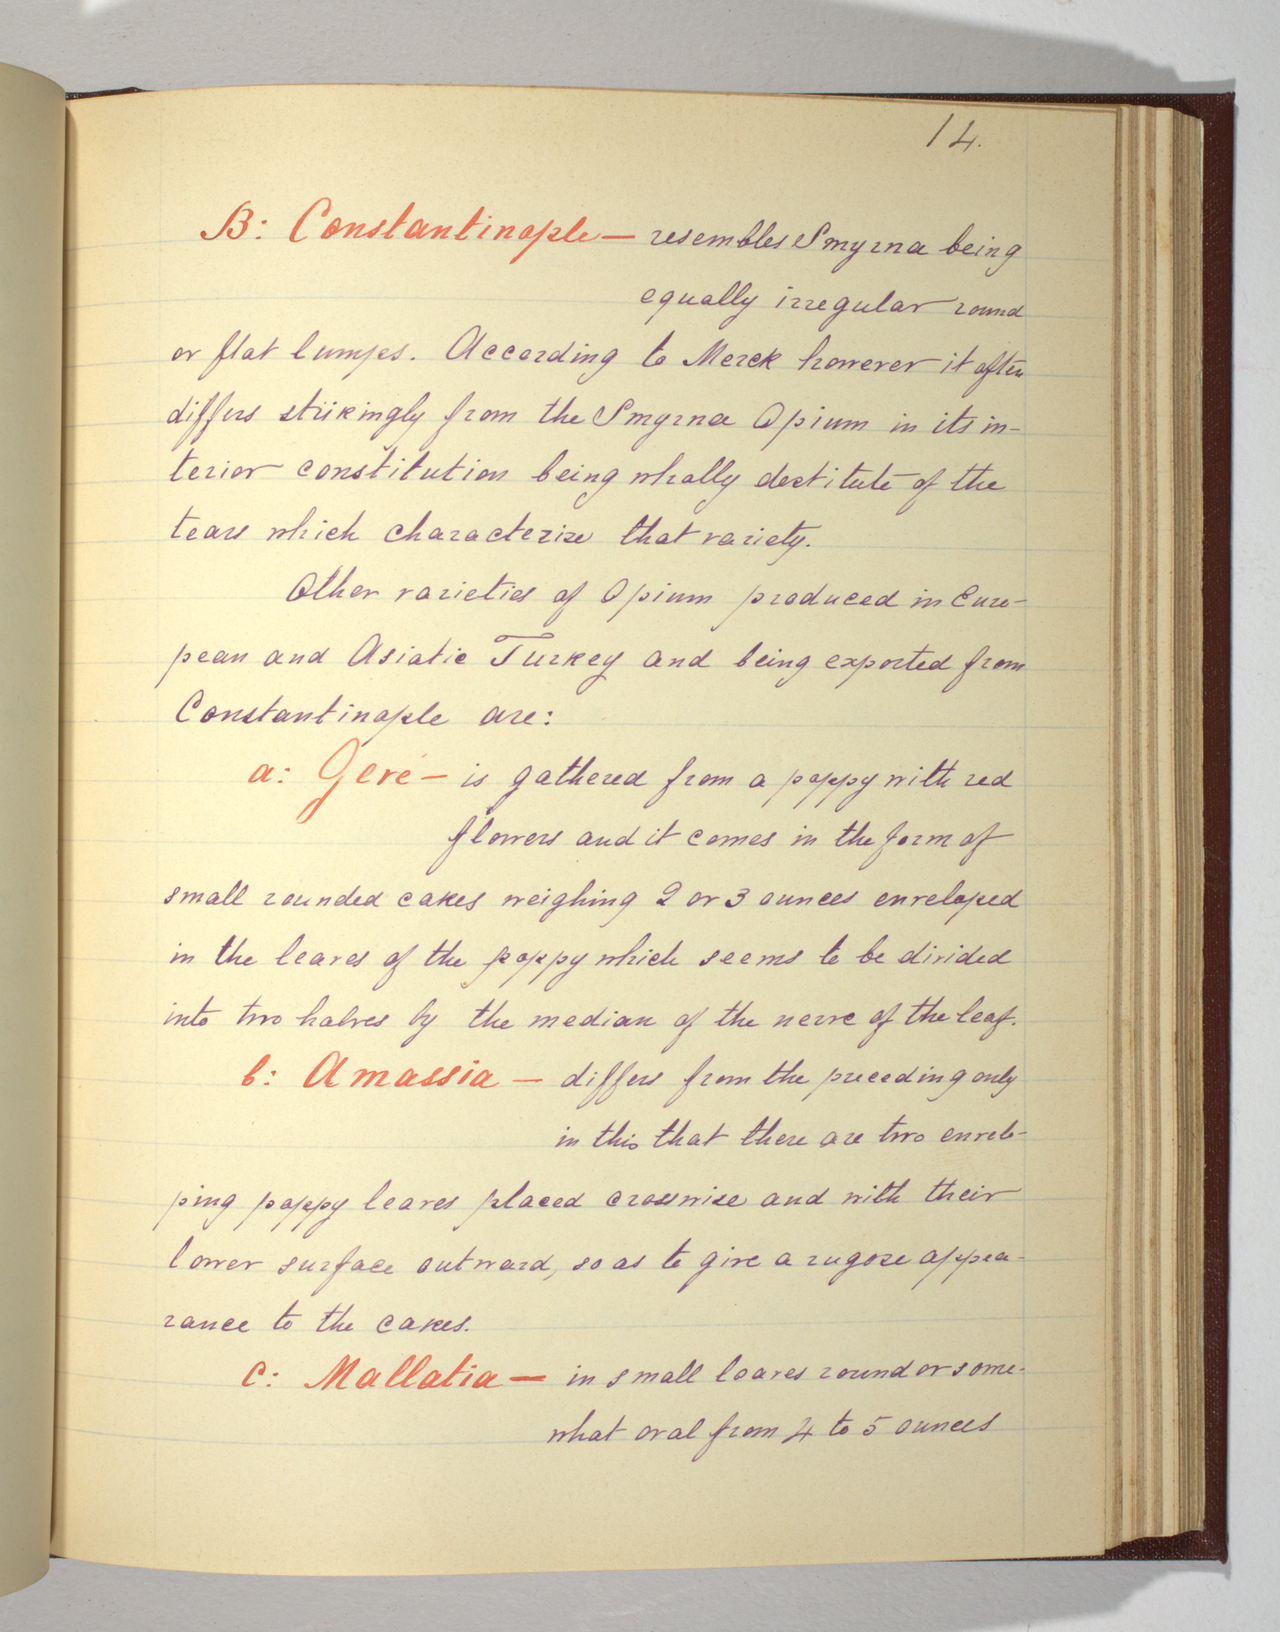 14.
B: Constantinople — resembles Smyrna being
equally irregular round
or flat lumps. According to Merck however it often
differs strikingly from the Smyrna Opium in its in-
terior constitution being wholly destitute of the
tears which characterize that variety.
Other varieties of Opium produced in Euro-
pean and Asiatic Turkey and being exported from
Constantinople are:
a: Geré — is gathered from a poppy with red
flowers and it comes in the form of
small rounded cakes weighing 2 or 3 ounces enveloped
in the leaves of the poppy which seems to be divided
into two halves by the median of the nerve of the leaf.
b: Amassia — differs from the preceding only
in this that there are two envelo-
ping poppy leaves placed crosswise and with their
lower surface outward, so as to give a rugose appea-
rance to the cakes.
c: Mallatia — in small loaves round or some-
what oval from 4 to 5 ounces